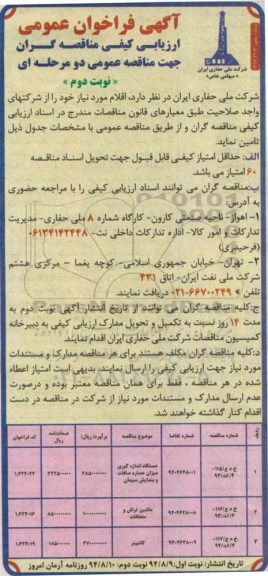 آگهی فراخوان عمومی
ارزیابی کیفی مناقصه گران
جهت مناقصه عمومی دو مرحله ای
«نوبت دوم»
شرکت ملی حفاری ایران
«سهامی خاص»
شرکت ملی حفاری ایران در نظر دارد، اقلام مورد نیاز خود را از شرکتهای
واجد صلاحیت طبق معیارهای قانون مناقصات مندرج در اسناد ارزیابی
کیفی مناقصه گران و از طریق مناقصه عمومی با مشخصات جدول ذیل
تامین نماید.
الف: حداقل امتیاز کیفی قابل قبول جهت تحویل اسناد مناقصه
۶۰ امتیاز می باشد.
ب: مناقصه گران می توانند اسناد ارزیابی کیفی را با مراجعه حضوری
به آدرس:
۱- اهواز- ناحیه صنعتی کارون- کارگاه شماره ۸ ملی حفاری- مدیریت
تدارکات و امور کالا- اداره تدکارات داخلی تلفن- ۰۶۱۳۴۱۴۲۴۴۸
۲- تهران- خیابان جمهوری اسلامی- کوچه یغما - مرکزی هشتم
شرکت ملی نفت ایران- اتاق ۴۳۱
تلفن ۶۶۷۰۰۲۴۹-۰۲۱ دریافت نمایند.
ج: کلیه مناقصه گران می توانند از تاریخ انتشار آگهی نوبت دوم به
مدت ۱۴ روز نسبت به تکمیل و تحویل مدارک ارزیابی کیفی به دبیرخانه
کمیسیون مناقصات شرکت ملی حفاری ایران اقدام نمایند.
د: کلیه مناقصه گران مکلف هستند برای هر مناقصه مدارک و مستندات
مورد نیاز جهت ارزیابی کیفی را ارسال نمایند بدیهی است امتیاز اعطاء
شده در هر مناقصه، فقط برای همان مناقصه معتبر بوده و درصورت
عدم ارسال مدارک و مستندات مورد نیاز از شرکت در مناقصه در دست
اقدام کنار گذاشته خواهند شد.
ردیف شماره مناقصه شماره تقاضا موضوع مناقصه برآورد/ریال ضمانتنامه ریال کد فراخوان
۱ دستگاه اندازه گیری میزان عصاره صافات و بندایش سیمان
۲ ماشین تراش و متعلقات
۳ کانتینر
تاریخ انتشار: نوبت اول: ۹۴/۸/۹ نوبت دوم: ۹۴/۸/۱۰ روزنامه آرمان امروز